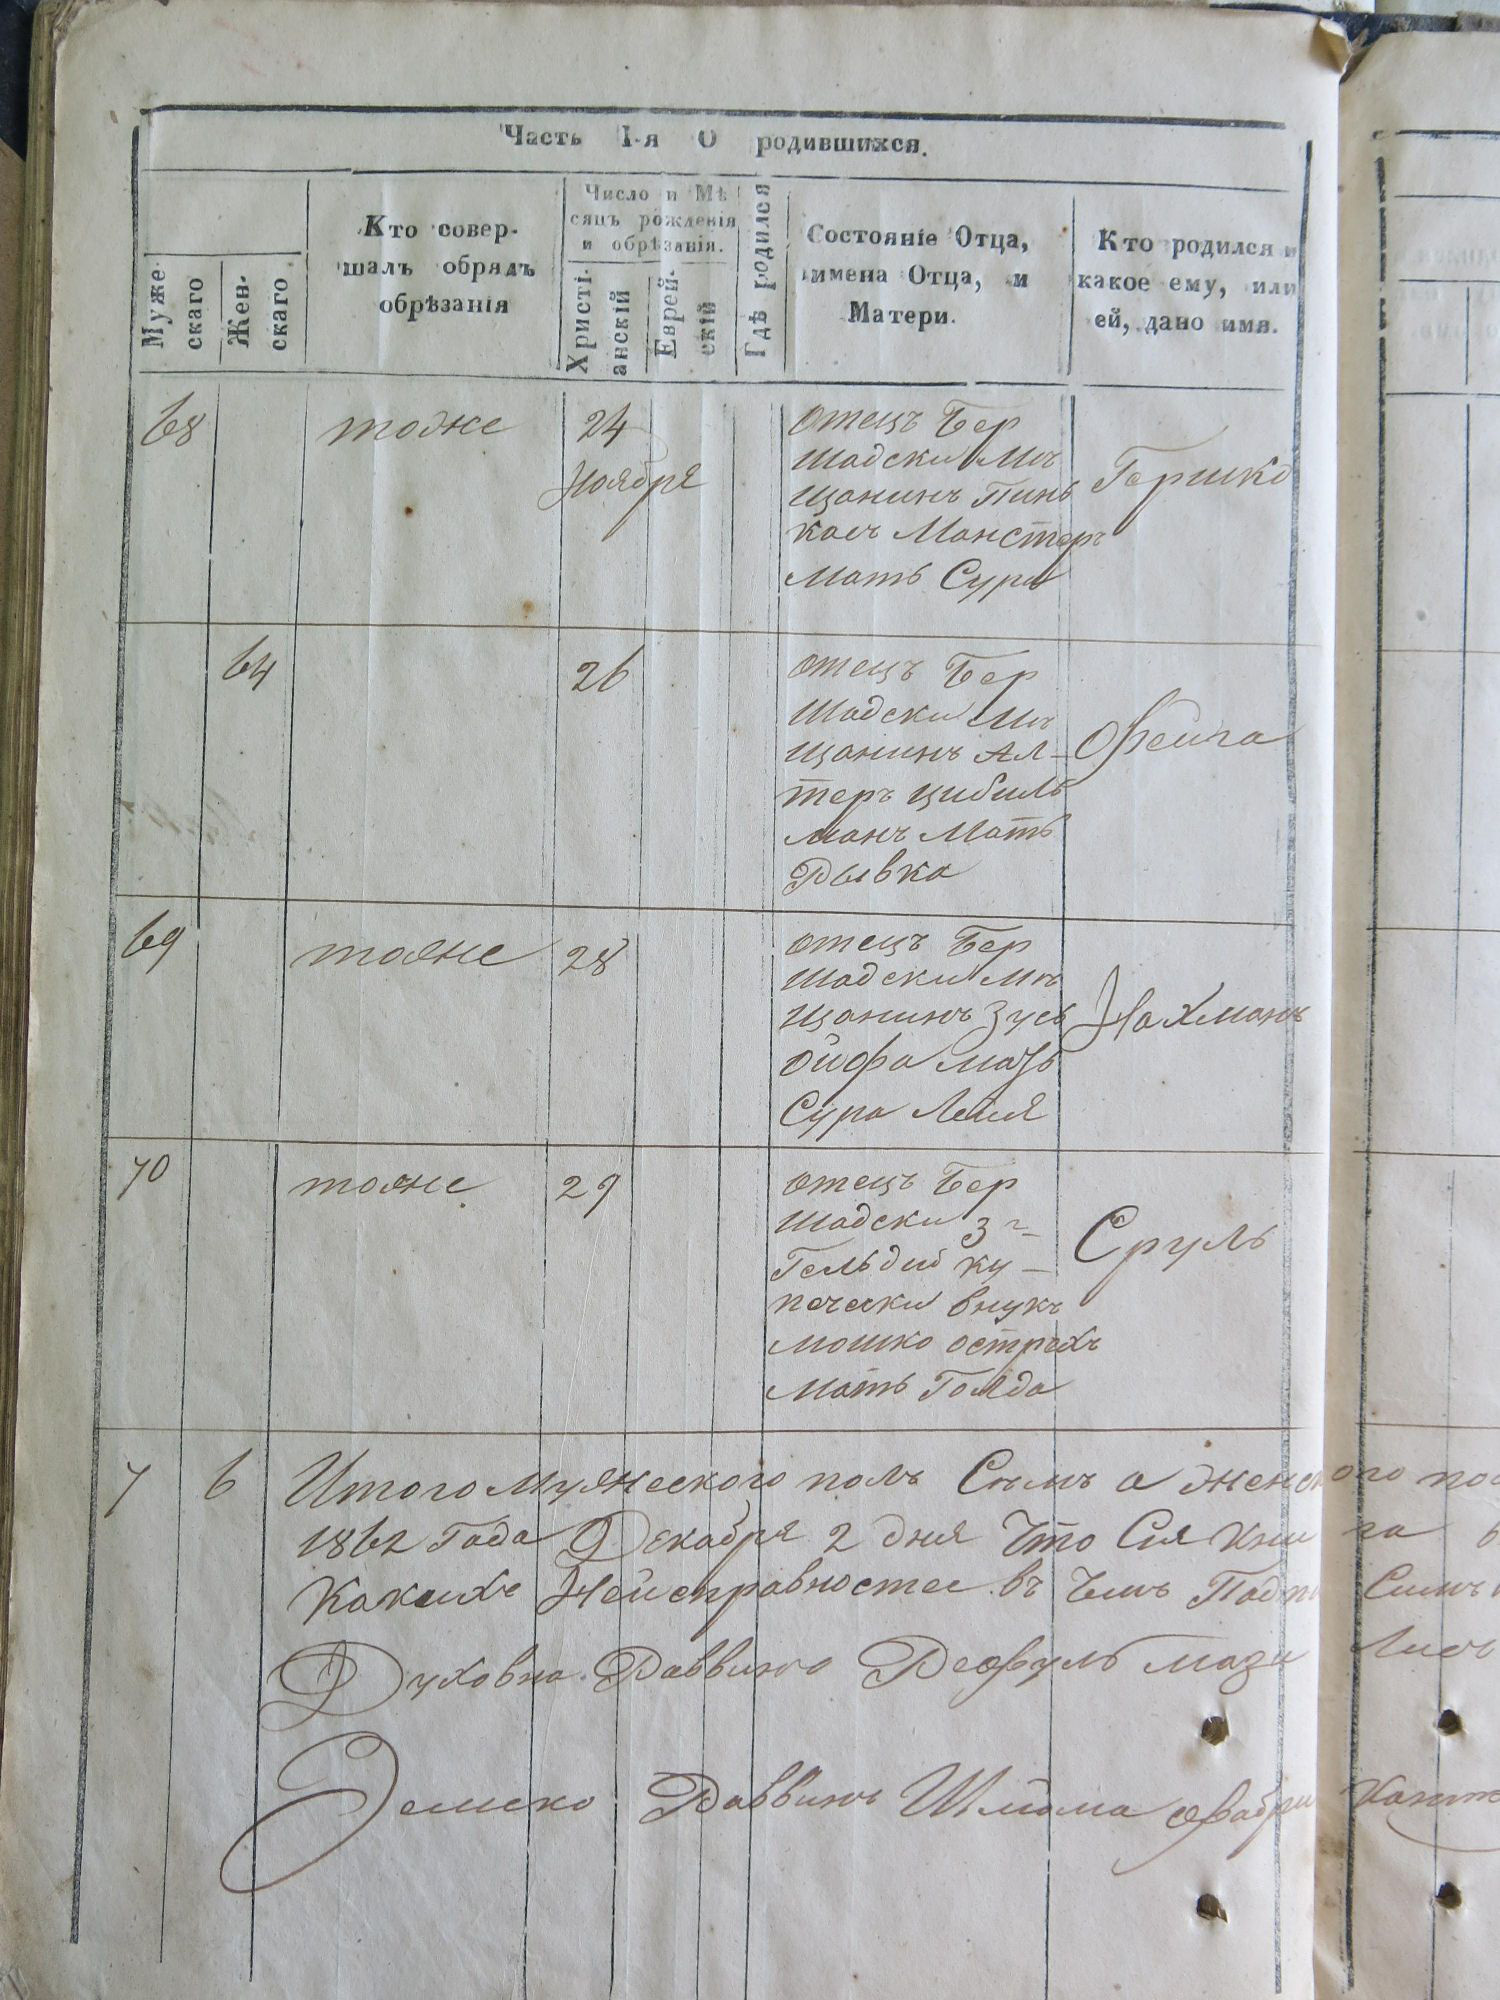 Часть I-я О родившихся.
Муже
скаго
Жен-
скаго
Кто совер-
шалъ обрядъ
обрѣзанія
Число и Мѣ
сяцъ рожденія
и обрѣзанія.
Христі-
анскій
Еврей-
скій
Гдѣ родился
Состояніе Отца,
имена Отца, и
Матери.
Кто родился и
какое ему, или
ей, дано имя.
68
тодже
24
Ноября
отецъ Бер
шадски мѣ
щанинъ Пинь
касъ Манстеръ
мать Сура
Гершко
64
26
отецъ Бер
шадски мѣ
щанинъ Ал-
теръ Цибиль
манъ Мать
Рывка
Фейга
69
тоже
28
отецъ Бер
шадски мѣ
щанинъ Зусь
Ойфа мать
Сура Лейя
Нахманъ
70
тоже
29
отецъ Бер
шадски 3 г-
Гельдий ку-
печески внукъ
мошко
мать Голда
Сруль
7 6 Итого мужеского полъ Семъ а женского
1862 Года Декабря 2 дня Что Сия Книга
Какихъ Неисправностее въ Чемъ Подпи Симъ
Духовна Раввина Рефуль мази
Земско Раввинъ Шлома Фабрикантъ